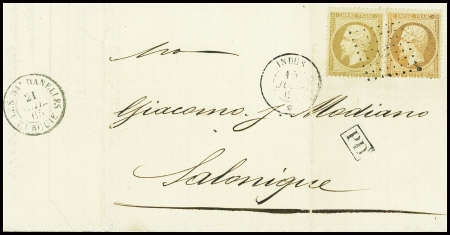 EMPIRE FRANC.
EMPIRE FRANC.
INDUS
15
LES DARDANELLES
21
65
TURQUIE
Giacomo J. Modiano
PD
Salonique